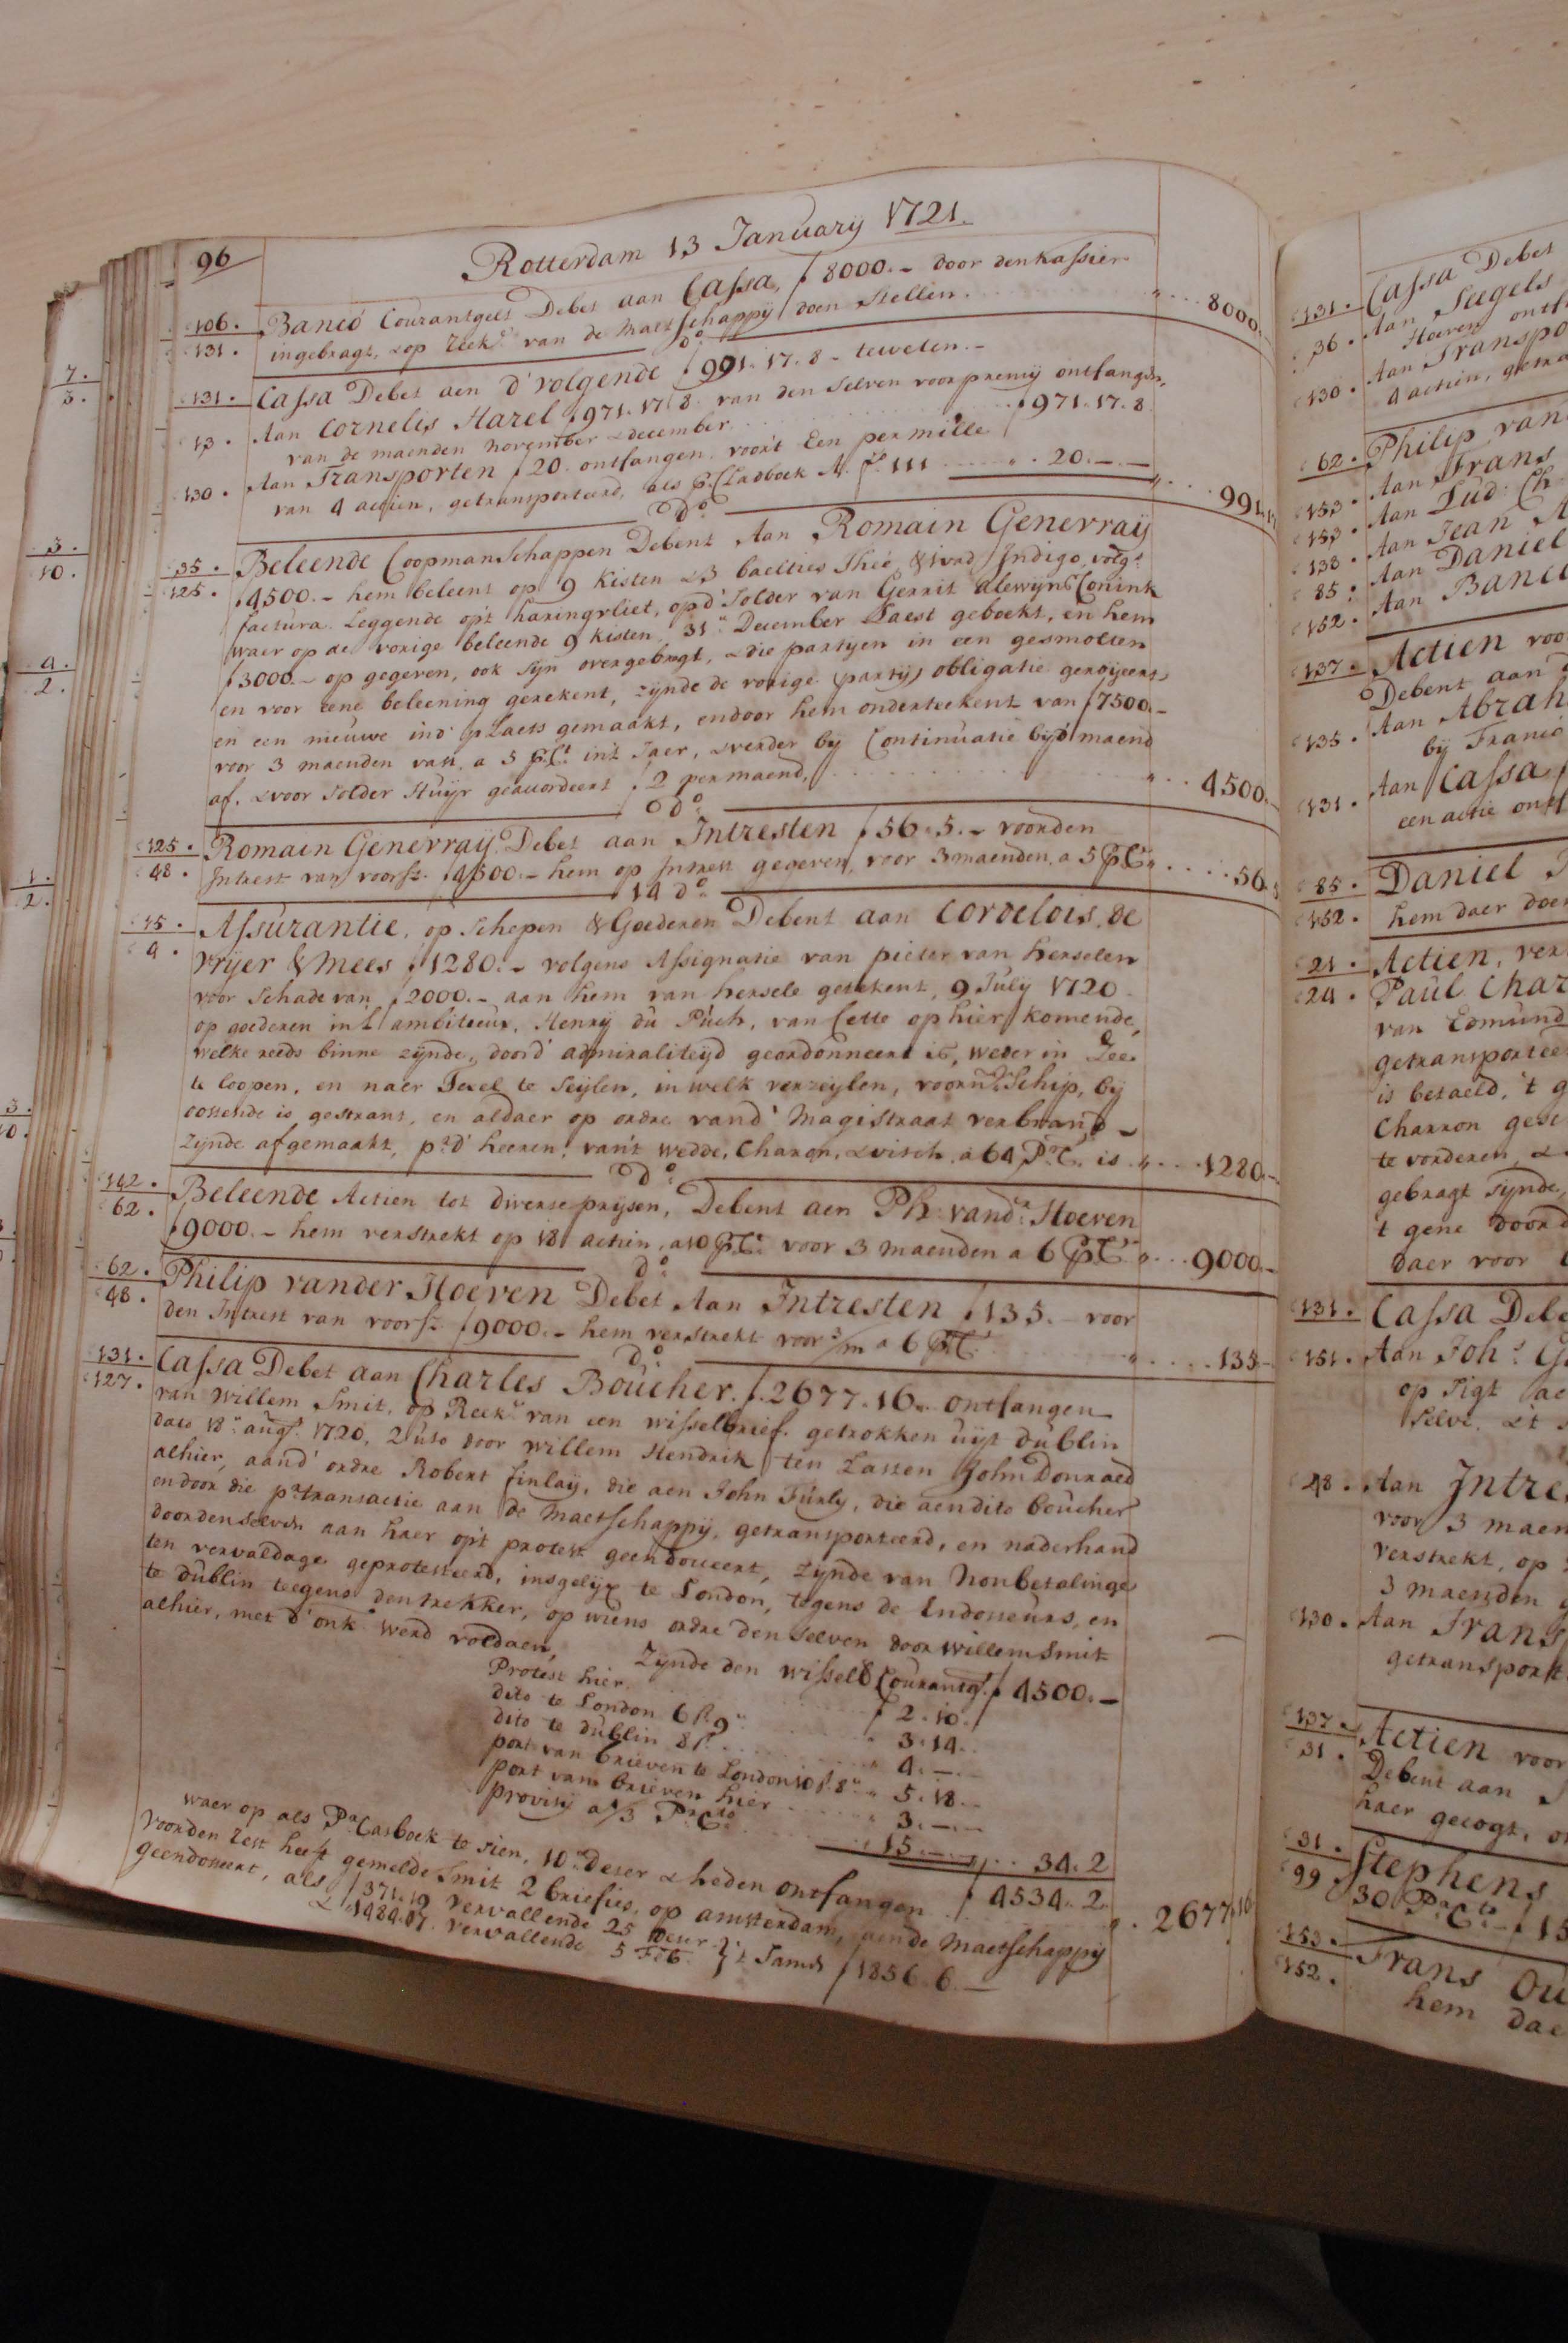 96
Rotterdam 13 January 1721.
106. Banco Courantgelt Debet aan Cassa, f 8000.- door den kassier
131. ingebragt, & op Reek. van de Maetschappy doen stellen. 8000.
do
131. Cassa Debet aen d'volgende f 991.17.8 - teweten.-
13. Aan Cornelis Harel f 971.17.8. van den selven voor premy ontfangen,
van de maenden november & december f 971.17.8
130. Aan Transporten f 20. ontfangen, voor't Een per mille
van 4 actien, getransporteerd, als p. Cladboek A. fo. 111 20.-.- 991.17
do
35. Beleende Coopmanschappen Debent Aan Romain Generraÿ
125. f 4500.- hem beleent op 9 kisten & 3 baelties Theé, & 1 vad Indigo, volgt
factura. Leggende op't haringvliet, op d'Solder van Gerrit alewyns Conink
waer op de vorige beleende 9 kisten, 31 December Laest geboekt, en hem
f 3000.- op gegeven, ook syn overgebragt, & die partyen in een gesmolten
en voor eene beleening gerekent, zynde de vorige (party) obligatie geroyeert
en een nieuwe ind' plaets gemaakt, en door hem onderteekent van f 7500.-
voor 3 maenden vast, a 5 P.Ct. int Jaer, & verder by Continuatie by d'maend
af, & voor solder Huyr geaccordeert f 2 per maend, 4500.
do
125. Romain Generraÿ Debet aan Intresten f 56.5.- voor den
48. Intrest van voorsz. f 4500.- hem op Intrest gegeven, voor 3 maenden, a 5 P.Ct. 56.5
14 do
15. Assurantie, op Schepen & Goederen Debent aan Cordelois, de
4. Vryer & Mees f 1280.- volgens Assignatie van pieter van herselen
voor Schade van f 2000.- aan hem van hersele geteekent, 9 July 1720
op goederen in L'ambiteeux, Henry du Puch, van Cette op hier komende,
welke reeds binne zynde, door d'admiraliteyd geordonneert is, weder in Zee
te loopen, en naer Texel te Seylen, in welk verzeylen, voorn. Schip, by
oostende is gestrant, en aldaer op ordre vand' Magistraat verbrand -
zynde afgemaakt, pr. d'heeren: van't wedde, Charon, & visch, a 64 P.Ct. is 1280.-
do
142. Beleende Actien tot diverse prysen, Debent aen Ph: vandr. Hoeven
62. f 9000.- hem verstrekt op 18 actien, a 10 P.Ct. voor 3 maenden a 6 P.Ct. 9000.-
do
62. Philip vander Hoeven Debet Aan Intresten f 135.- voor
48. den Intrest van voorsz. f 9000.- hem verstrekt voor 3/m a 6 P.Ct. 135.-
do
131. Cassa Debet aan Charles Boucher. f. 2677.16. ontfangen
127. van Willem Smit, op Reek. van een wisselbrief. getrokken uyt dublin
dato 18 augt. 1720, 2 uso door willem Hendrik ten Lasten John Donraed
alhier, aand' ordre Robert finlay, die aen John Furly, die aen dito boucher
en door die pr. transactie aan de Maetschappy, getransporteerd, en naderhand
door denselven aan haer op't protest geendosseert, zynde van Nonbetalinge
ten vervaldage geprotesteerd, insgelyx te London, tegens de Endosseurs, en
te dublin teegens den trekker, op wiens ordre den selven door willem Smit
alhier, met d'onk. werd voldaen, Zynde den wissel Courantgt. f 4500.-
Protest hier f 2.10.
dito te London 6 ß 9 3.14.
dito te dublin 8 ß. 4.-.-
port van brieven te London 10 ß 8 5.18.-
port van brieven hier 3.-.-
provisy a 1/3 Pr. Cto. 15.-.- 34.2
waer op als Pr. Casboek te sien, 10 deser & heden ontfangen f 4534.2.
voor den rest heeft gemelde Smit 2 briefies, op amsterdam, aende Maetschappy
geendosseert, als f 371.19 vervallende 25 deser 2677.16
& f 1484.07. vervallende 5 Feb. } t'samen f 1856.6.-
7.
3.
3.
10.
4.
2.
1.
2.
3.
10.
131. Cassa Debet
36. Aan Seegels
Hoeven ontf
130. Aan Transpo
4 actien, getra
62. Philip van
153. Aan Frans
153. Aan Lud: Ch
138. Aan Jean
85. Aan Daniel
152. Aan Banco
137. Actien voo
Debent aan
135. Aan Abrah
by Franco
131. Aan Cassa
een actie ontf
85. Daniel
152. hem daer door
21. Actien, ver
24. Paul Char
van Edmund
getransportee
is betaeld, 't g
Charron gest
te vorderen, &
gebragt synde,
't gene door d
daer voor
131. Cassa Debe
151. Aan Johs. G
op Sigt
selve, & t
48. Aan Intre
voor 3 maen
verstrekt, op
3 maenden
130. Aan Trans
getransport
137. Actien voor
31. Debent aan
haer gecogt,
31. Stephens
99. 30 Pr. Cto. f 15
153. Frans Ou
152. hem dae